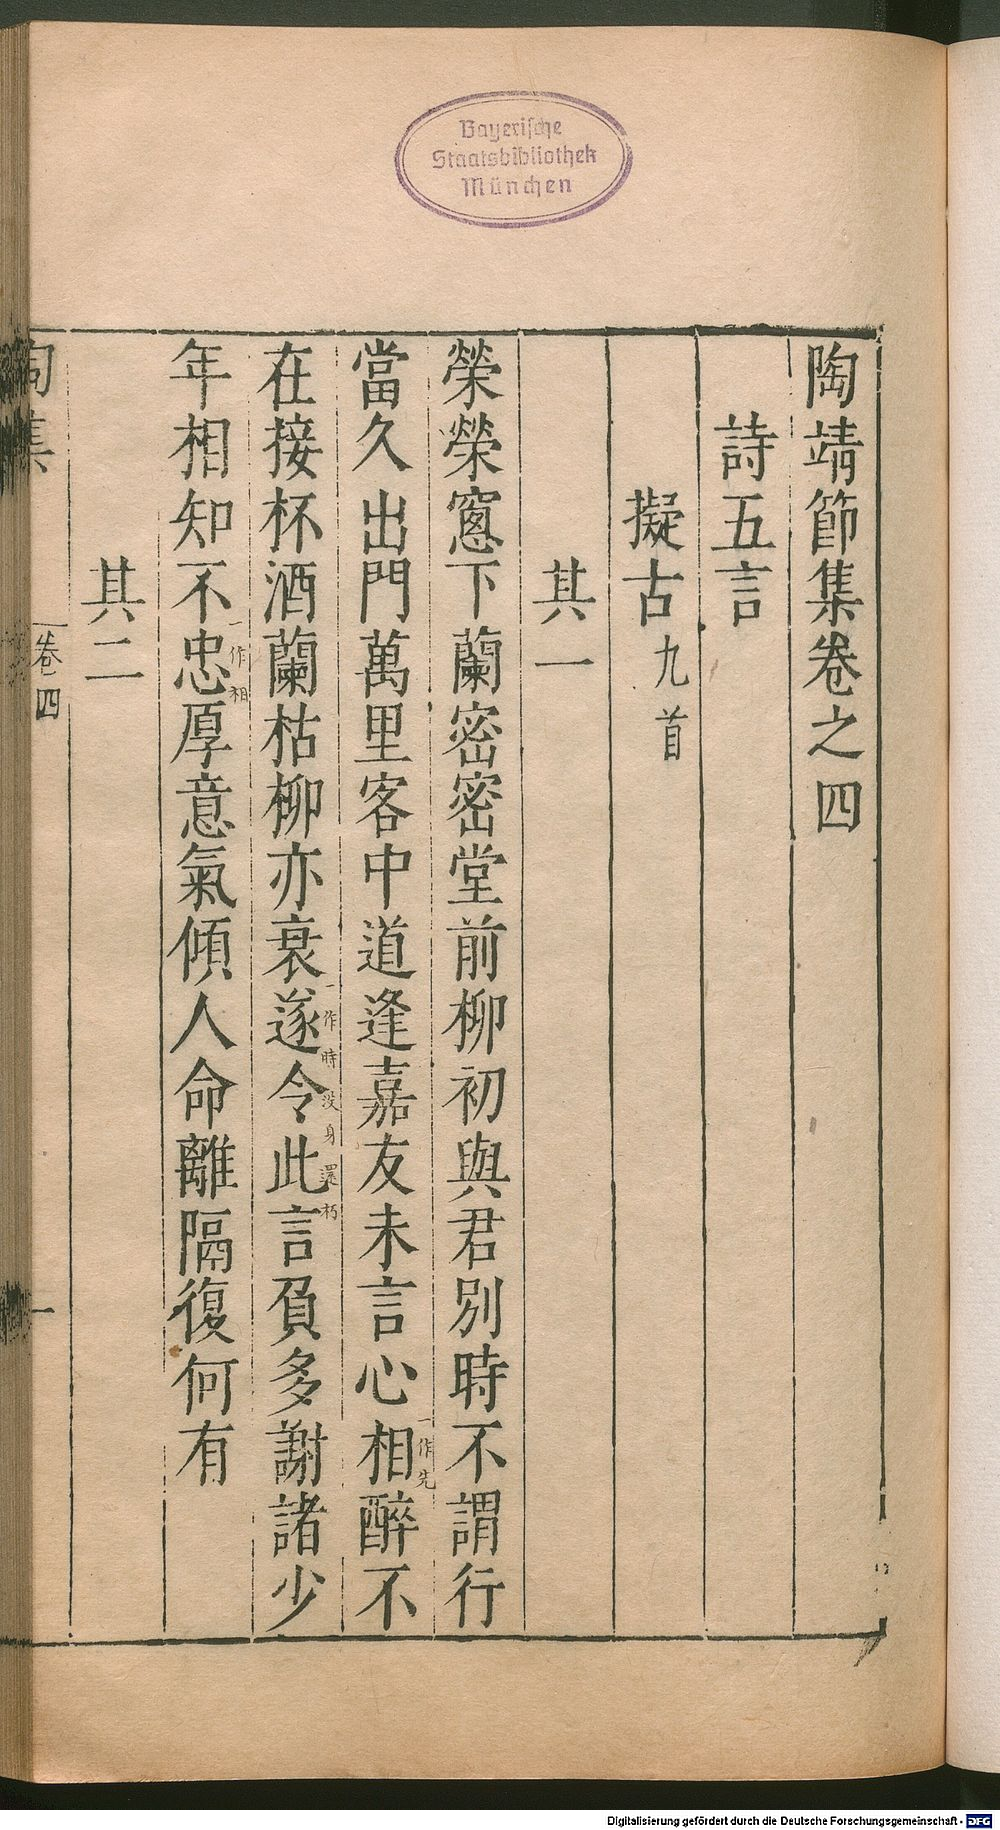 Bayerische
Staatsbibliothek
München
陶靖節集卷之四
詩五言
擬古九首
其一
榮榮窻下蘭密密堂前柳初與君別時不謂行
當久出門萬里客中道逢嘉友未言心相一作先醉不
在接杯酒蘭枯柳亦衰遂令此言負一作時没身還朽多謝諸少
年相知不忠一作相厚意氣傾人命離隔復何有
其二
陶集
卷四
一
Digitalisierung gefördert durch die Deutsche Forschungsgemeinschaft - DFG